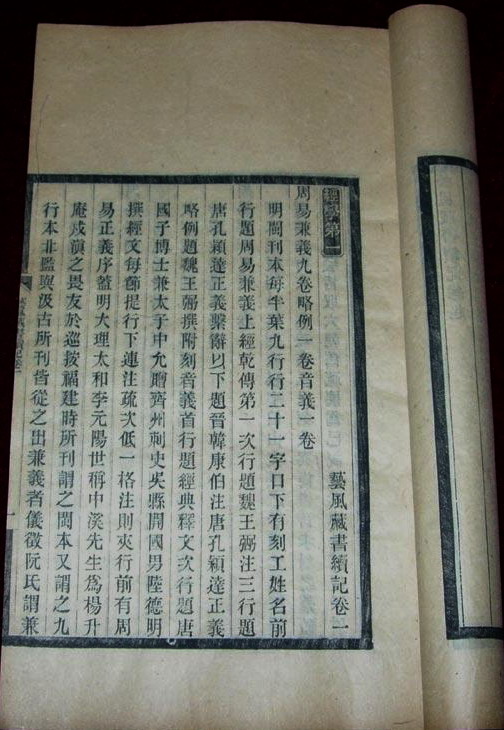 經學第一　藝風藏書續記卷一
周易兼義九卷略例一卷音義一卷
明閩刊本每半葉九行行二十一字口下有刻工姓名前
行題周易兼義上經乾傳第一次行題魏王弼注三行題
唐孔穎達正義繫辭以下題晉韓康伯注唐孔穎達正義
略例題魏王弼撰附刻音義首行題經典釋文次行題唐
國子博士兼太子中允贈齊州刺史吳縣開國男陸德明
撰經文每節提行下連注疏次低一格注則夾行前有周
易正義序蓋明大理太和李元陽世稱中溪先生爲楊升
庵戍滇之畏友於巡按福建時所刊謂之閩本又謂之九
行本北監與汲古所刊皆從之出兼義者儀徵阮氏謂兼